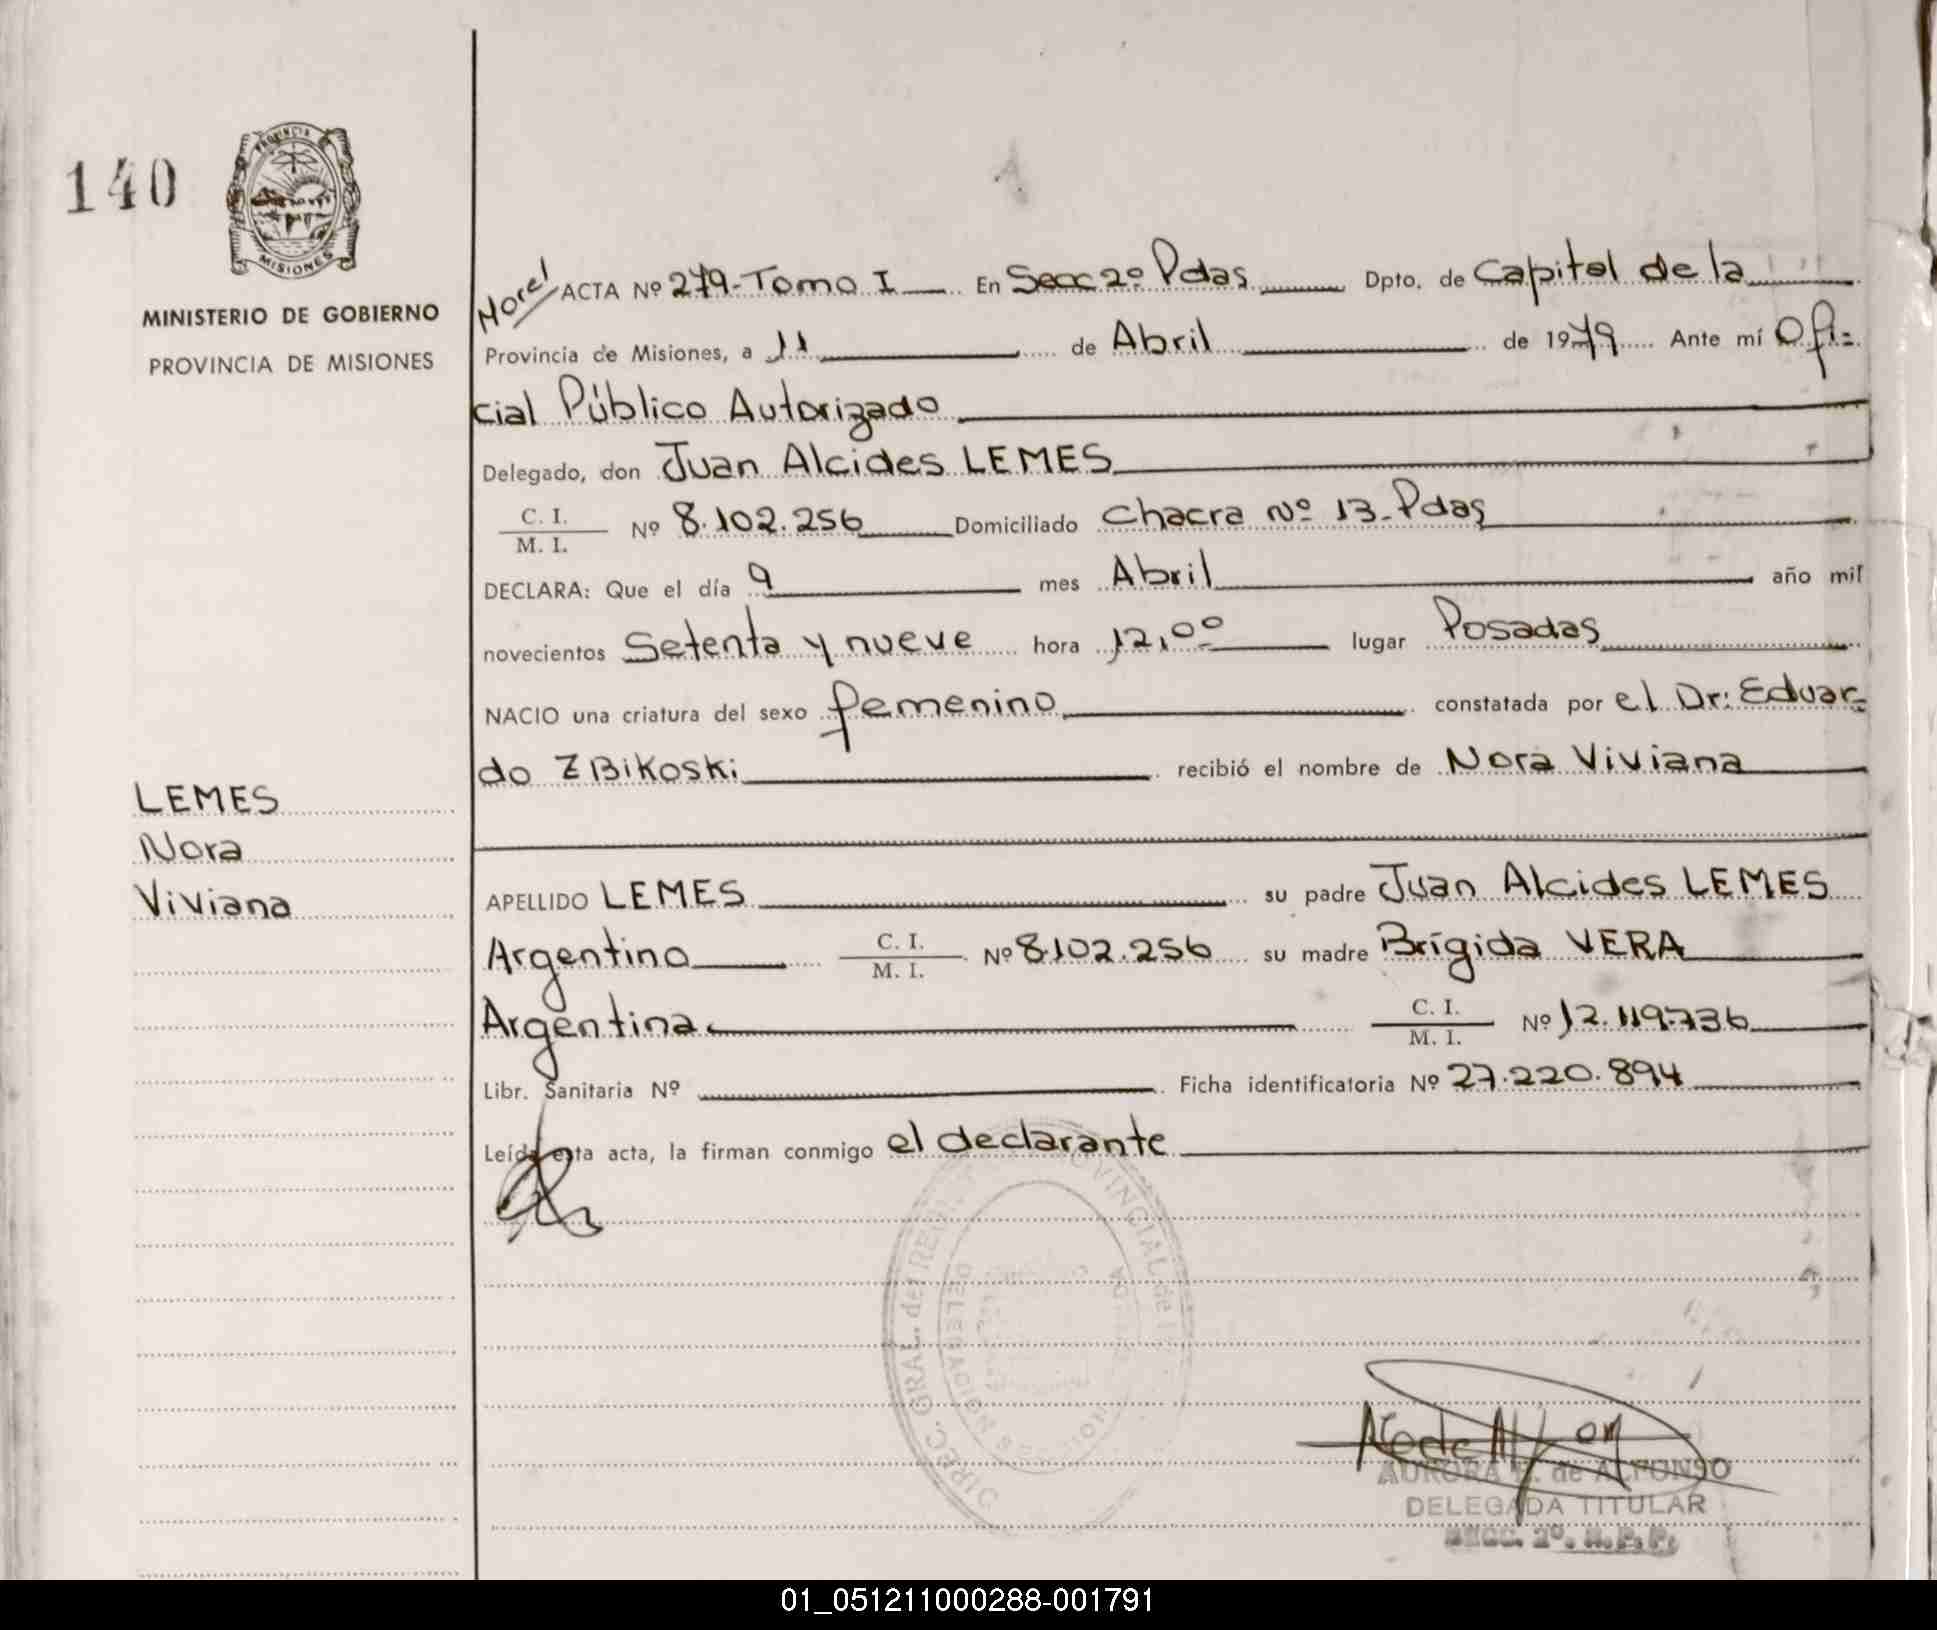 140
PROVINCIA
MISIONES
MINISTERIO DE GOBIERNO
PROVINCIA DE MISIONES
LEMES
Nora
Viviana
ACTA Nº 279-Tomo I En Secc 2º Pdas Dpto. de Capital de la
Provincia de Misiones, a 11 de Abril de 1979 Ante mí Ofi-
cial Público Autorizado
Delegado, don Juan Alcides LEMES
C. I.
M. I.
Nº 8.102.256 Domiciliado Chacra Nº 13-Pdas
DECLARA: Que el día 9 mes Abril año mil
novecientos Setenta y nueve hora 12,00 lugar Posadas
NACIO una criatura del sexo femenino constatada por el Dr: Eduar-
do ZBikoski recibió el nombre de Nora Viviana
APELLIDO LEMES su padre Juan Alcides LEMES
Argentino C. I. M. I. Nº 8.102.256 su madre Brígida VERA
Argentina C. I. M. I. Nº 12.119.736
Libr. Sanitaria Nº Ficha identificatoria Nº 27.220.894
Leída esta acta, la firman conmigo el declarante
DIREC. GRAL. del REG. PROVINCIAL de
DELEGACION
AURORA de ALFONSO
DELEGADA TITULAR
SECC. 2º.
01_051211000288-001791